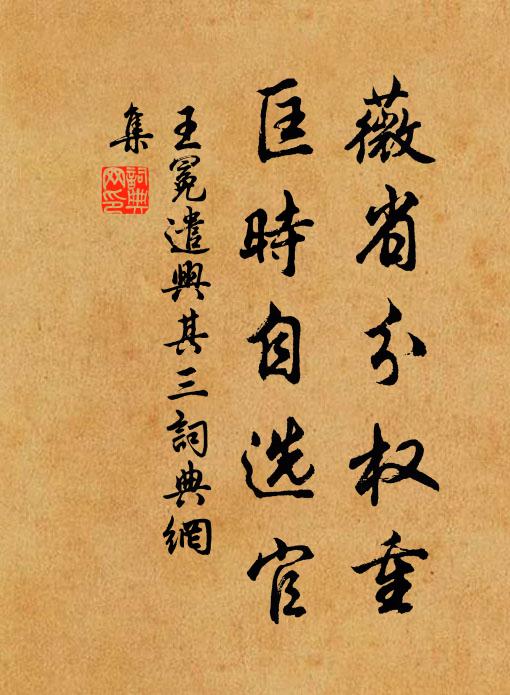 薇省分权重
匡時自选官
王冕遣興其三詞典網
集
詞典
网印